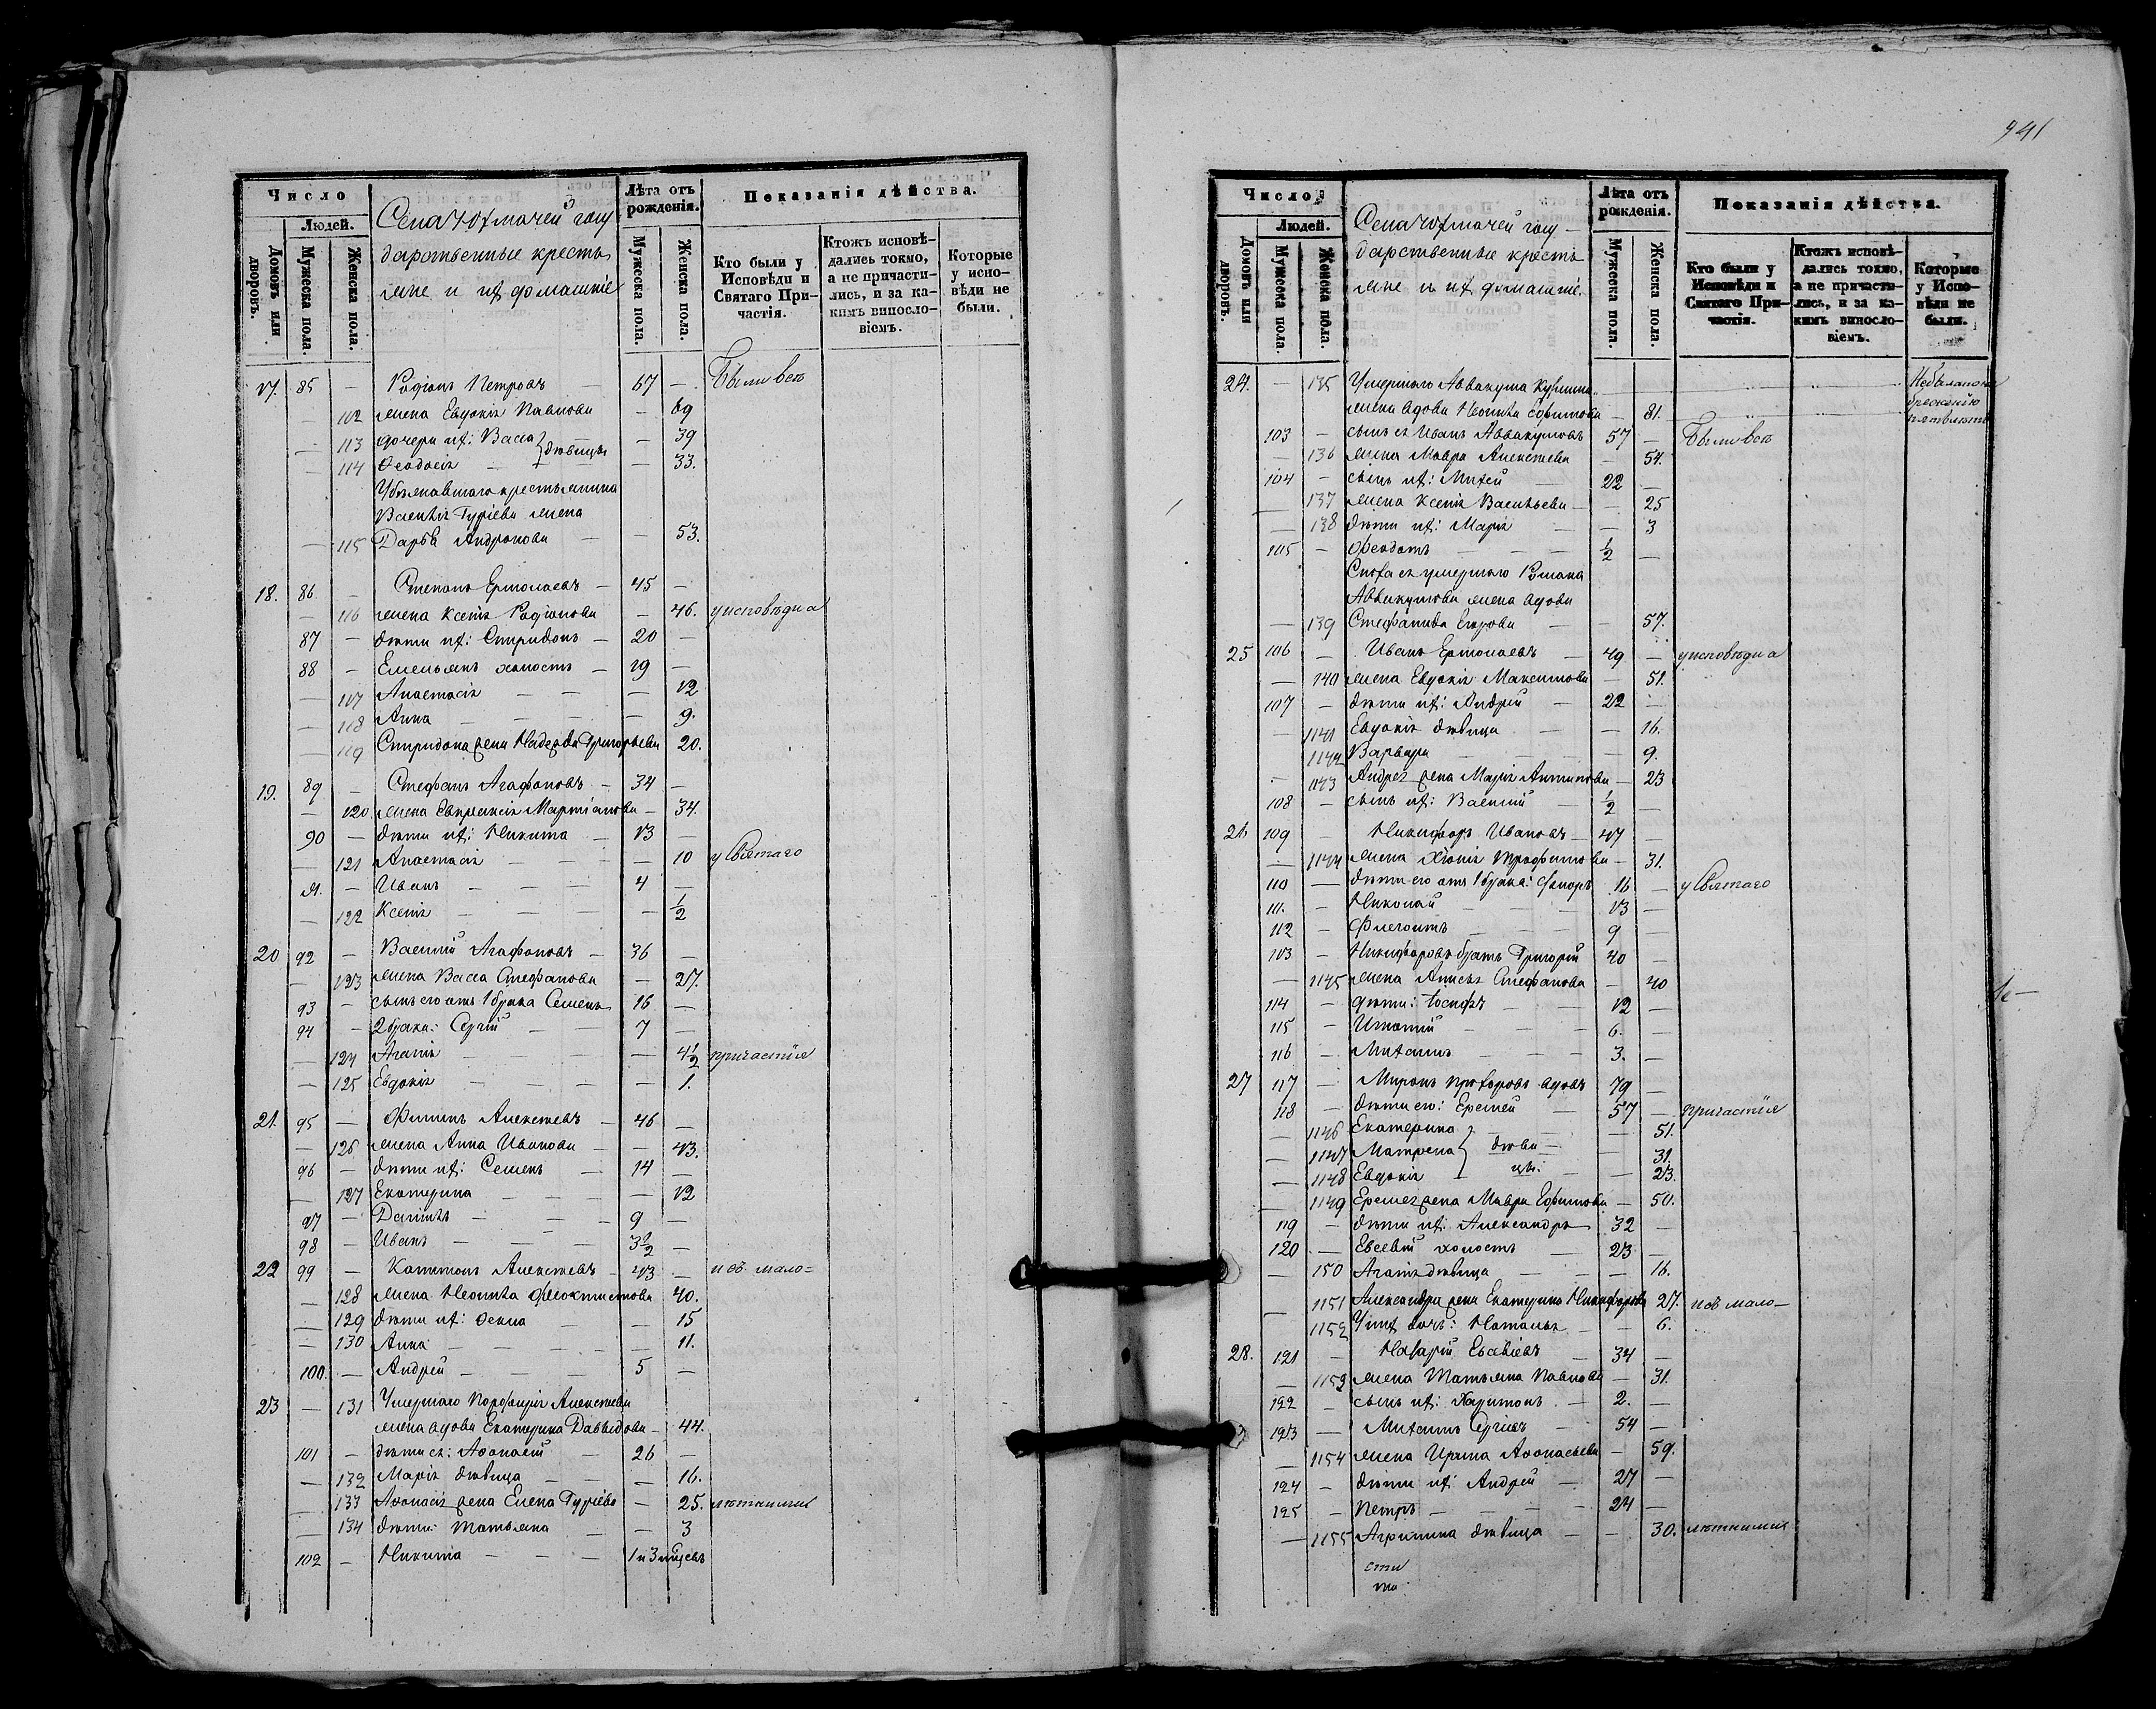 Число
Людей.
Домовъ или дворовъ.
Мужеска пола.
Женска пола.
Села Чохмачей госу
дарственные кресть
яне и их домашніе
Лѣта отъ рожденія.
Мужеска пола.
Женска пола.
Показанія дѣйства.
Кто были у Исповѣди и Святаго Причастія.
Ктожъ исповѣдались токмо, а не причастились, и за какимъ винословіемъ.
Которые у исповѣди не были.
17. 85 — Родіонъ Петровъ — 67 — Были всѣ
— 112 жена Евдокія Павлова — 69
— 113 дочери их: Васса } дѣвицы — 39
— 114 Ѳеодосія — 33.
Убѣжавшаго крестьянина
Василія Гуріева жена
— 115 Дарья Андронова — — 53.
18. 86 — Степанъ Ермолаевъ — 45 —
— 116 жена Ксенія Родіонова — 46. у исповѣди и
87 — дѣти их: Спиридонъ — 20 —
88 — Емельянъ холостъ — 19 —
— 117 Анастасія — — — 12
— 118 Анна — — — 9.
— 119 Спиридона жена Надежда Григорьева 20.
19. 89 — Стефанъ Агафоновъ — 34 —
— 120 жена Евпраксія Мартіанова — 34.
90 — дѣти их: Никита — 13 —
— 121 Анастасія — — — 10 у Святаго
91. — Иванъ — — — 4 —
— 122 Ксенія — — — 1/2
20 92 — Василій Агафоновъ — 36 —
— 123 жена Васса Стефанова — 27.
93 — сынъ его отъ 1 брака Семенъ 16 —
94 — 2 брака: Сергій — — 7 —
— 124 Агапія — — — 4 1/2 причастія
— 125 Евдокія — — — 1.
21. 95 — Филипъ Алексѣевъ — 46 —
— 126 жена Анна Иванова — — 43.
96 — дѣти их: Семенъ — 14 —
— 127 Екатерина — — — 12
97 — Даніилъ — — 9 —
98 — Иванъ — — — 3 1/2 —
22 99 — Капитонъ Алексѣевъ — 43 — и св. мало=
— 128 жена Неонила Ѳеоктистова 40.
— 129 дѣти их: Ѳекла — — 15
— 130 Анна — — — 11.
100. — Андрей — — — 5 —
23 — 131 Умершаго Порфирія Алексѣева
жена вдова Екатерина Давыдова — 44.
101 — дѣти ея: Аѳонасій — 26 —
— 132 Марія дѣвица — — — 16.
— 133 Аѳонасія жена Елена Гуріева — 25. лѣтними
— 134 дѣти: Татьяна — — 3
102 — Никита — — — 1 и 3 мѣсев
941
Число
Людей.
Домовъ или дворовъ.
Мужеска пола.
Женска пола.
Села Чохмачей госу—
дарственные кресть
яне и их домашніе.
Лѣта отъ рожденія.
Мужеска пола.
Женска пола.
Показанія дѣйства.
Кто были у Исповѣди и Святаго Причастія.
Ктожъ исповѣдались токмо, а не причастились, и за какимъ винословіемъ.
Которые у Исповѣди не были.
24. — 135 Умершаго Аввакума Кузмина
жена вдова Неонила Ефимова — 81.
103 — сынъ ея Иванъ Аввакумовъ 57 — Были всѣ
— 136 жена Мавра Алексѣева — 54.
104 — сынъ их: Михей — 22 —
— 137 жена Ксенія Васильева — — 25
— 138 дѣти их: Марія — — 3
105 — Ѳеодотъ — — — 1/2 —
Сноха ея умершаго Романа
Аввакумова жена вдова
— 139 Стефанида Егорова — — 57.
25 106 — Иванъ Ермолаевъ — 49 — у исповѣди и
— 140 жена Евдокія Максимова — 51.
107 — дѣти их: Андрей — 22 —
— 1141 Евдокія дѣвица — — 16.
1142 Варвара — — — 9.
— 1143 Андрея жена Марія Антипова — 23
108 — сынъ их: Василій — 1/2 —
26 109 — Никифоръ Ивановъ — 47 —
— 1144 жена Хіонія Трофимова — 31.
110 — дѣти его отъ 1 брака: Ѳ҃едоръ 16 — у Святаго
111. — Николай — — — 13 —
112 — Флегонтъ — — — 9 —
113 — Никифоровъ братъ Григорій 40 —
— 1145 жена Анисья Стефанова — 40
114 — дѣти: Іосифъ — — 12 —
115 — Игнатій — — — 6. —
116 — Михаилъ — — — 3. —
27 117 — Миронъ Прохоровъ вдовъ 79 —
118 — дѣти его: Еремей — 57 — причастія
— 1146 Екатерина — — — 51.
— 1147 Матрена } дѣви— — 31.
— 1148 Евдокія цы: — — 23.
— 1149 Еремея жена Мавра Ефимова — 50.
119 — дѣти их: Александръ 32 —
120 — Евсевій холостъ — 23 —
— 150 Агапія дѣвица — — — 16.
— 1151 Александра жена Екатерина Никифорова 27. и св мало—
1152 У них дочь: Наталья — — 6.
28. 121 — Назарій Евсевіевъ — 34 —
— 1153 жена Татьяна Павлова — 31.
122 — сынъ их: Харитонъ. — 2. —
123 — Михаилъ Сергіевъ — 54 —
— 1154 жена Ирина Аѳонасьева — 59.
124 — дѣти их Андрей — 27 —
125 — Петръ — — — 24 —
— 1155 Агрипина дѣвица — — 30. лѣтними